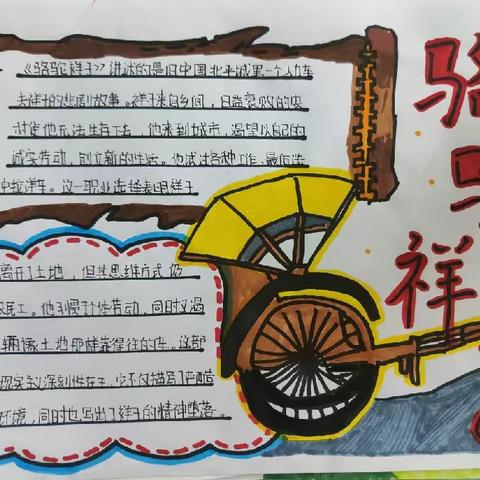 《骆驼祥子》讲述的是旧中国北平城里一个人力车
夫祥子的悲剧故事。祥子来自乡间，日益衰败的农
村使他无法生存下去，他来到城市，渴望以自己的
诚实劳动，创立新的生活。他试过各种工作，最后选
中拉洋车。这一职业选择表明祥子
离开了土地，但其思维方式仍
农民工。他习惯于个体劳动，同时又渴
辆像土地那样靠得住的车。这部
现实主义深刻性在于，它不仅描写了严酷
环境，同时也写出了祥子的精神堕落。
骆
祥